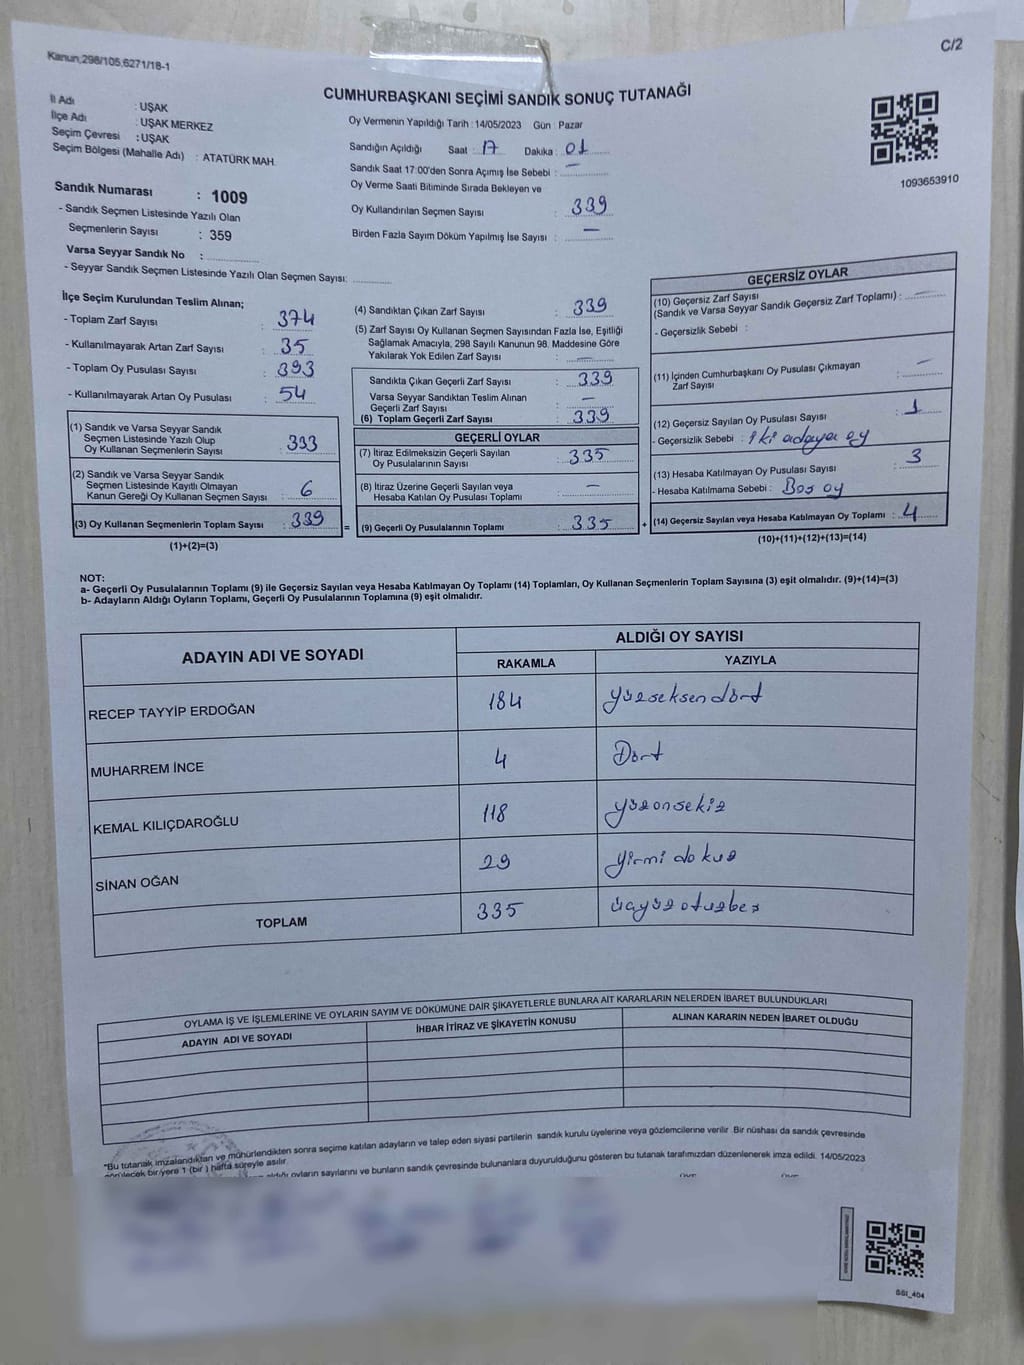 C/2
Kanun,298/105,6271/18-1
CUMHURBAŞKANI SEÇİMİ SANDIK SONUÇ TUTANAĞI
İl Adı : UŞAK
İlçe Adı : UŞAK MERKEZ
Seçim Çevresi : UŞAK
Seçim Bölgesi (Mahalle Adı) : ATATÜRK MAH.
Sandık Numarası : 1009
- Sandık Seçmen Listesinde Yazılı Olan
Seçmenlerin Sayısı : 359
Varsa Seyyar Sandık No :
- Seyyar Sandık Seçmen Listesinde Yazılı Olan Seçmen Sayısı:
Oy Vermenin Yapıldığı Tarih : 14/05/2023 Gün : Pazar
Sandığın Açıldığı Saat : 17 Dakika : 01
Sandık Saat 17:00'den Sonra Açımış İse Sebebi : —
Oy Verme Saati Bitiminde Sırada Bekleyen ve
Oy Kullandırılan Seçmen Sayısı : 339
Birden Fazla Sayım Döküm Yapılmış İse Sayısı : —
1093653910
İlçe Seçim Kurulundan Teslim Alınan;
- Toplam Zarf Sayısı : 374
- Kullanılmayarak Artan Zarf Sayısı : 35
- Toplam Oy Pusulası Sayısı : 393
- Kullanılmayarak Artan Oy Pusulası : 54
(1) Sandık ve Varsa Seyyar Sandık
Seçmen Listesinde Yazılı Olup
Oy Kullanan Seçmenlerin Sayısı : 333
(2) Sandık ve Varsa Seyyar Sandık
Seçmen Listesinde Kayıtlı Olmayan
Kanun Gereği Oy Kullanan Seçmen Sayısı : 6
(3) Oy Kullanan Seçmenlerin Toplam Sayısı : 339 =
(1)+(2)=(3)
(4) Sandıktan Çıkan Zarf Sayısı : 339
(5) Zarf Sayısı Oy Kullanan Seçmen Sayısından Fazla İse, Eşitliği
Sağlamak Amacıyla, 298 Sayılı Kanunun 98. Maddesine Göre
Yakılarak Yok Edilen Zarf Sayısı : —
Sandıkta Çıkan Geçerli Zarf Sayısı : 339
Varsa Seyyar Sandıktan Teslim Alınan
Geçerli Zarf Sayısı : —
(6) Toplam Geçerli Zarf Sayısı : 339
GEÇERLİ OYLAR
(7) İtiraz Edilmeksizin Geçerli Sayılan
Oy Pusulalarının Sayısı : 335
(8) İtiraz Üzerine Geçerli Sayılan veya
Hesaba Katılan Oy Pusulası Toplamı : —
(9) Geçerli Oy Pusulalarının Toplamı : 335 +
GEÇERSİZ OYLAR
(10) Geçersiz Zarf Sayısı
(Sandık ve Varsa Seyyar Sandık Geçersiz Zarf Toplamı) : —
- Geçersizlik Sebebi :
(11) İçinden Cumhurbaşkanı Oy Pusulası Çıkmayan
Zarf Sayısı : —
(12) Geçersiz Sayılan Oy Pusulası Sayısı : 1
- Geçersizlik Sebebi : iki adaya oy
(13) Hesaba Katılmayan Oy Pusulası Sayısı : 3
- Hesaba Katılmama Sebebi : Boş oy
(14) Geçersiz Sayılan veya Hesaba Katılmayan Oy Toplamı : 4
(10)+(11)+(12)+(13)=(14)
NOT:
a- Geçerli Oy Pusulalarının Toplamı (9) ile Geçersiz Sayılan veya Hesaba Katılmayan Oy Toplamı (14) Toplamları, Oy Kullanan Seçmenlerin Toplam Sayısına (3) eşit olmalıdır. (9)+(14)=(3)
b- Adayların Aldığı Oyların Toplamı, Geçerli Oy Pusulalarının Toplamına (9) eşit olmalıdır.
ADAYIN ADI VE SOYADI ALDIĞI OY SAYISI
RAKAMLA YAZIYLA
RECEP TAYYİP ERDOĞAN 184 Yüzseksendört
MUHARREM İNCE 4 Dört
KEMAL KILIÇDAROĞLU 118 Yüzonsekiz
SİNAN OĞAN 29 Yirmi dokuz
TOPLAM 335 üçyüzotuzbeş
OYLAMA İŞ VE İŞLEMLERİNE VE OYLARIN SAYIM VE DÖKÜMÜNE DAİR ŞİKAYETLERLE BUNLARA AİT KARARLARIN NELERDEN İBARET BULUNDUKLARI
ADAYIN ADI VE SOYADI İHBAR İTİRAZ VE ŞİKAYETİN KONUSU ALINAN KARARIN NEDEN İBARET OLDUĞU
*Bu tutanak imzalandıktan ve mühürlendikten sonra seçime katılan adayların ve talep eden siyasi partilerin sandık kurulu üyelerine veya gözlemcilerine verilir. Bir nüshası da sandık çevresinde
görülecek bir yere 1 (bir ) hafta süreyle asılır.
aldığı oyların sayılarını ve bunların sandık çevresinde bulunanlara duyurulduğunu gösteren bu tutanak tarafımızdan düzenlenerek imza edildi. 14/05/2023
SSI_404